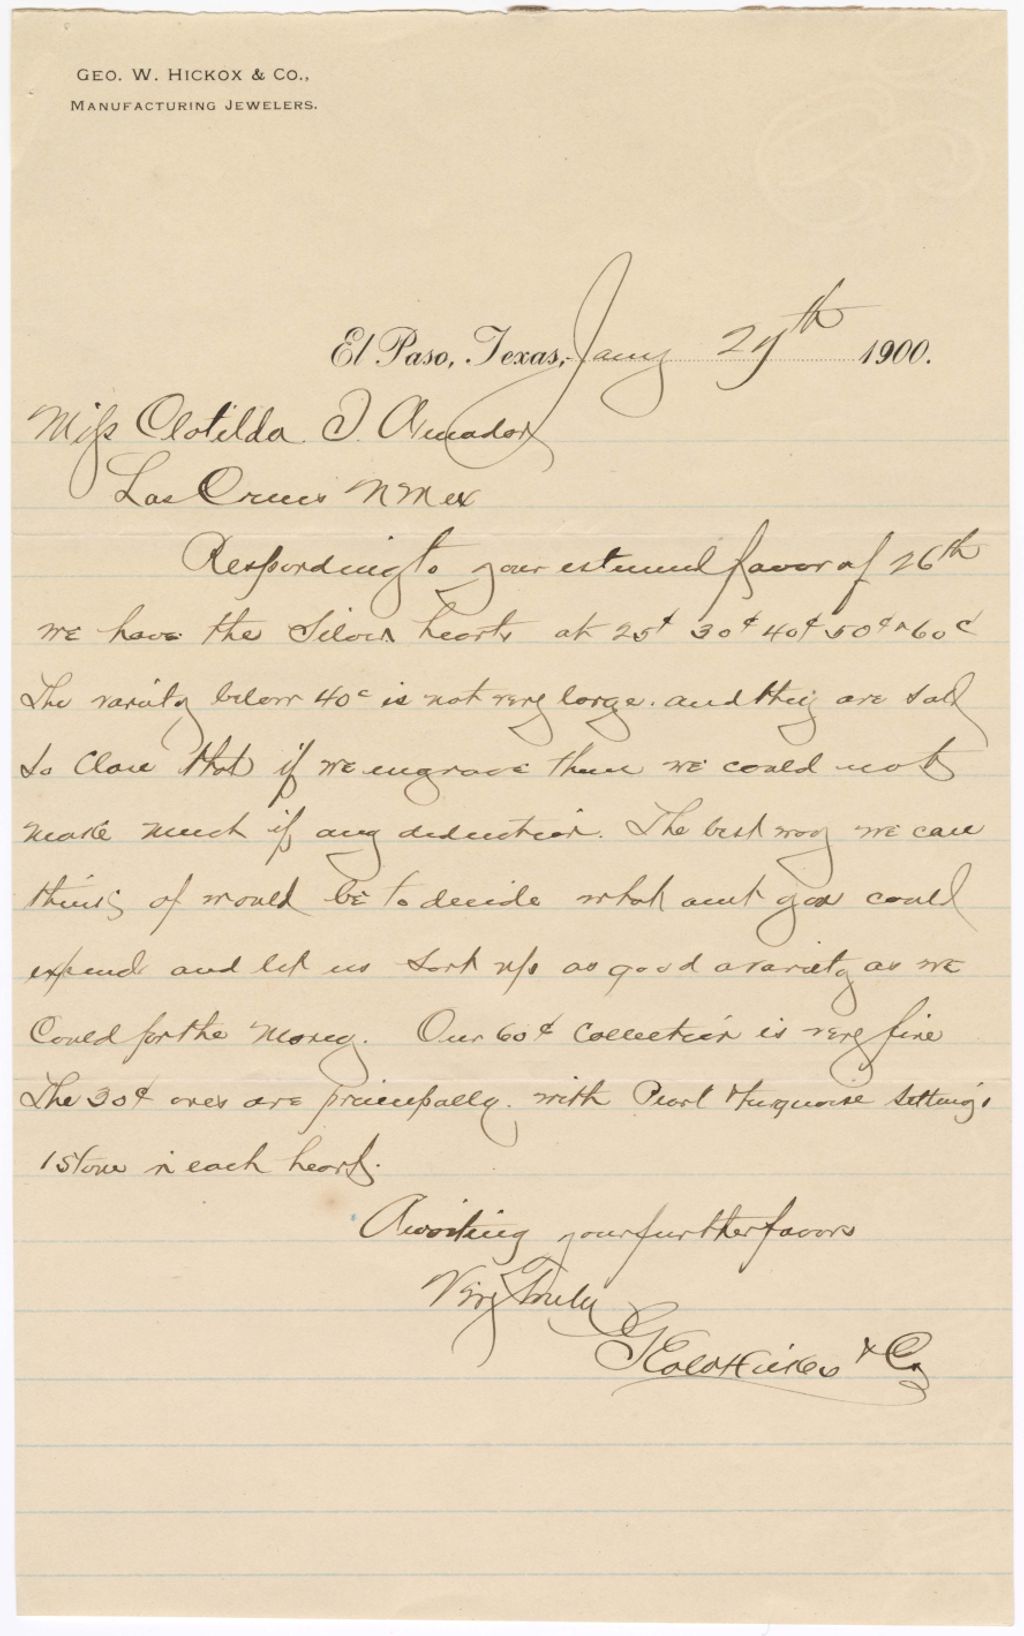 GEO. W. HICKOX & CO.,
MANUFACTURING JEWELERS.
El Paso, Texas, Jany 29th 1900.
Miss Clotilda. Amador
Las Cruces N Mex
Responding to your esteemed favor of 26th
we have the Silver hearts at 25¢ 30¢ 40¢ 50¢ & 60¢
The variety below 40c is not very large. and they are sold
so close that if we engrave them we could not
make much if any deduction. The best way we can
think of would be to decide what amt you could
expend and let us sort up as good a variety as we
Could for the Money. Our 60¢ Collection is very fine
The 30¢ ones are principally. with Pearl & turquoise settings
1 Stone in each heart.
Awaiting your further favors
Very Truly
Geo W Hickox & Co